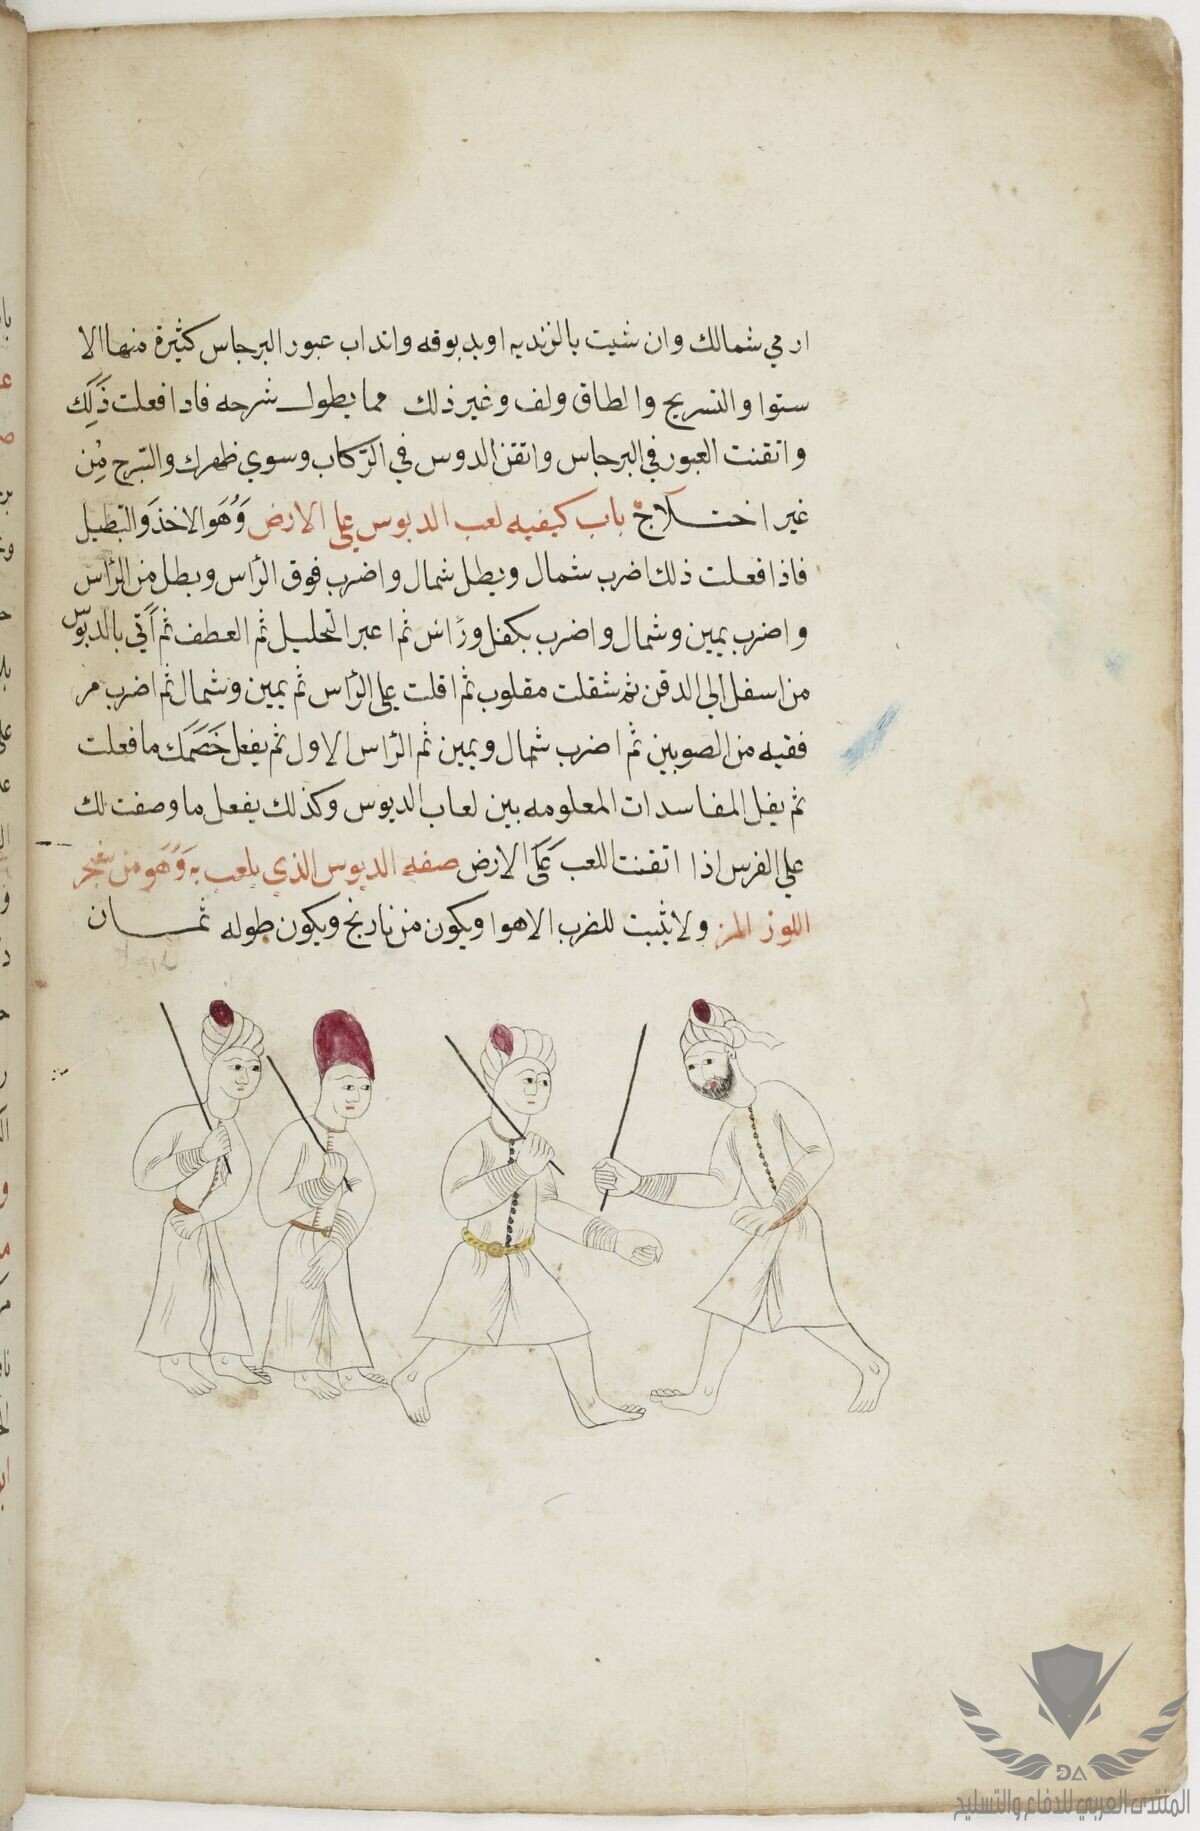 ارمي شمالك وان شيت بالزنديه اوبدبوقه وانداب عبور البرجاس كثيرة منها الا
ستوا والتسريح والطاق ولف وغير ذلك مما يطول شرحه فاذا فعلت ذَلِكَ
واتقنت العبور في البرجاس واتقن الدوس في الرّكاب وسوي ظهرك والتبرج مِن
غير اختلاج باب كيفيه لعب الدبوس على الارض وَهُوَ الاخذ والتبطيل
فاذا فعلت ذلك اضرب شمال وبطل شمال واضرب فوق الرّاس وبطل من الرّاس
واضرب يمين وشمال واضرب بكفل ورَاس ثم اعبر التحليل ثم العطف ثم أتي بالدبوس
من اسفل الي الدقن ثم شقلت مقلوب ثم اقلت على الرّاس ثم يمين وشمال ثم اضرب مر
فقيه من الصوبين ثم اضرب شمال ويمين ثم الرّاس الاول ثم يفعل خَصَمَك ما فعلت
ثم يفل المفاسدات المعلومه بين لعاب الدبوس وكذلك يفعل ما وصفت لك
علي الفرس اذا اتقنت اللعب عَلَى الارض صفه الدبوس الذي يلعب به وَهُوَ من شجر
اللوز المز ولا يثبت للضرب الا هوا ويكون من نارنج ويكون طوله ثمان
DA
المنتدى العربي للدفاع والتسليح